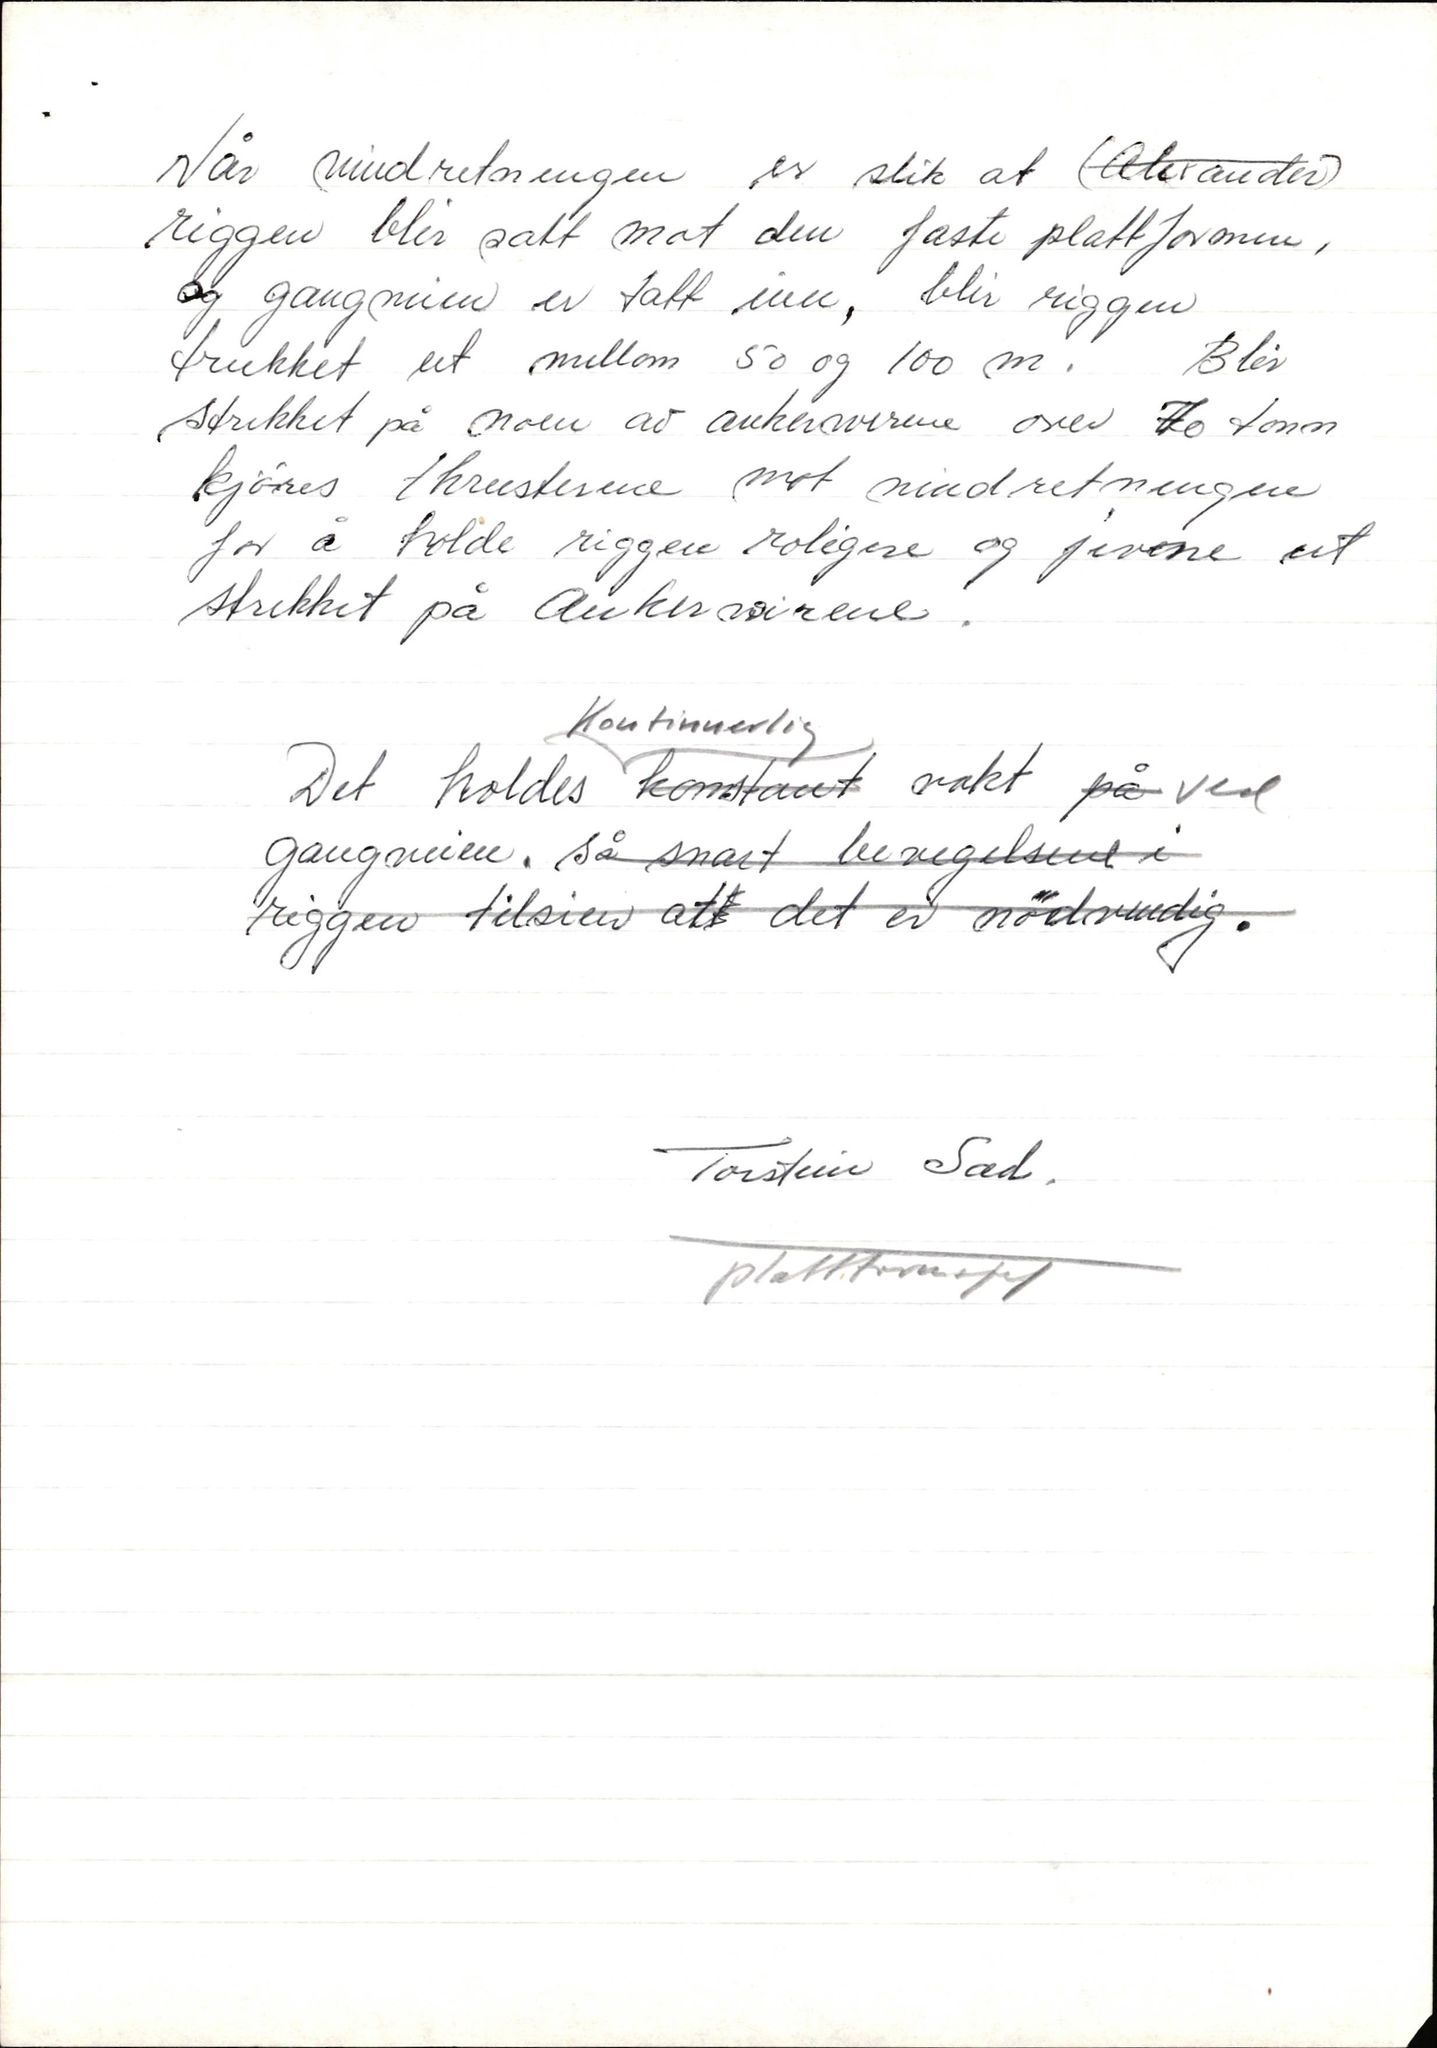 Når vindretningen er slik at (Alexander)
riggen blir satt mot den faste plattformen,
og gangveien er tatt inn, blir riggen
trukket ut mellom 50 og 100 m. Blir
strekket på noen av ankerwirene over 70 tonn
kjöres thrusterene mot vindretningen
for å holde riggen roligere og jevne ut
strekket på Ankerwirene.
Kontinuerlig
Det holdes konstant vakt på ved
gangveien. så snart bevegelsene i
riggen tilsier att det er nödvendig.
Torstein Sæd.
plattformsjef